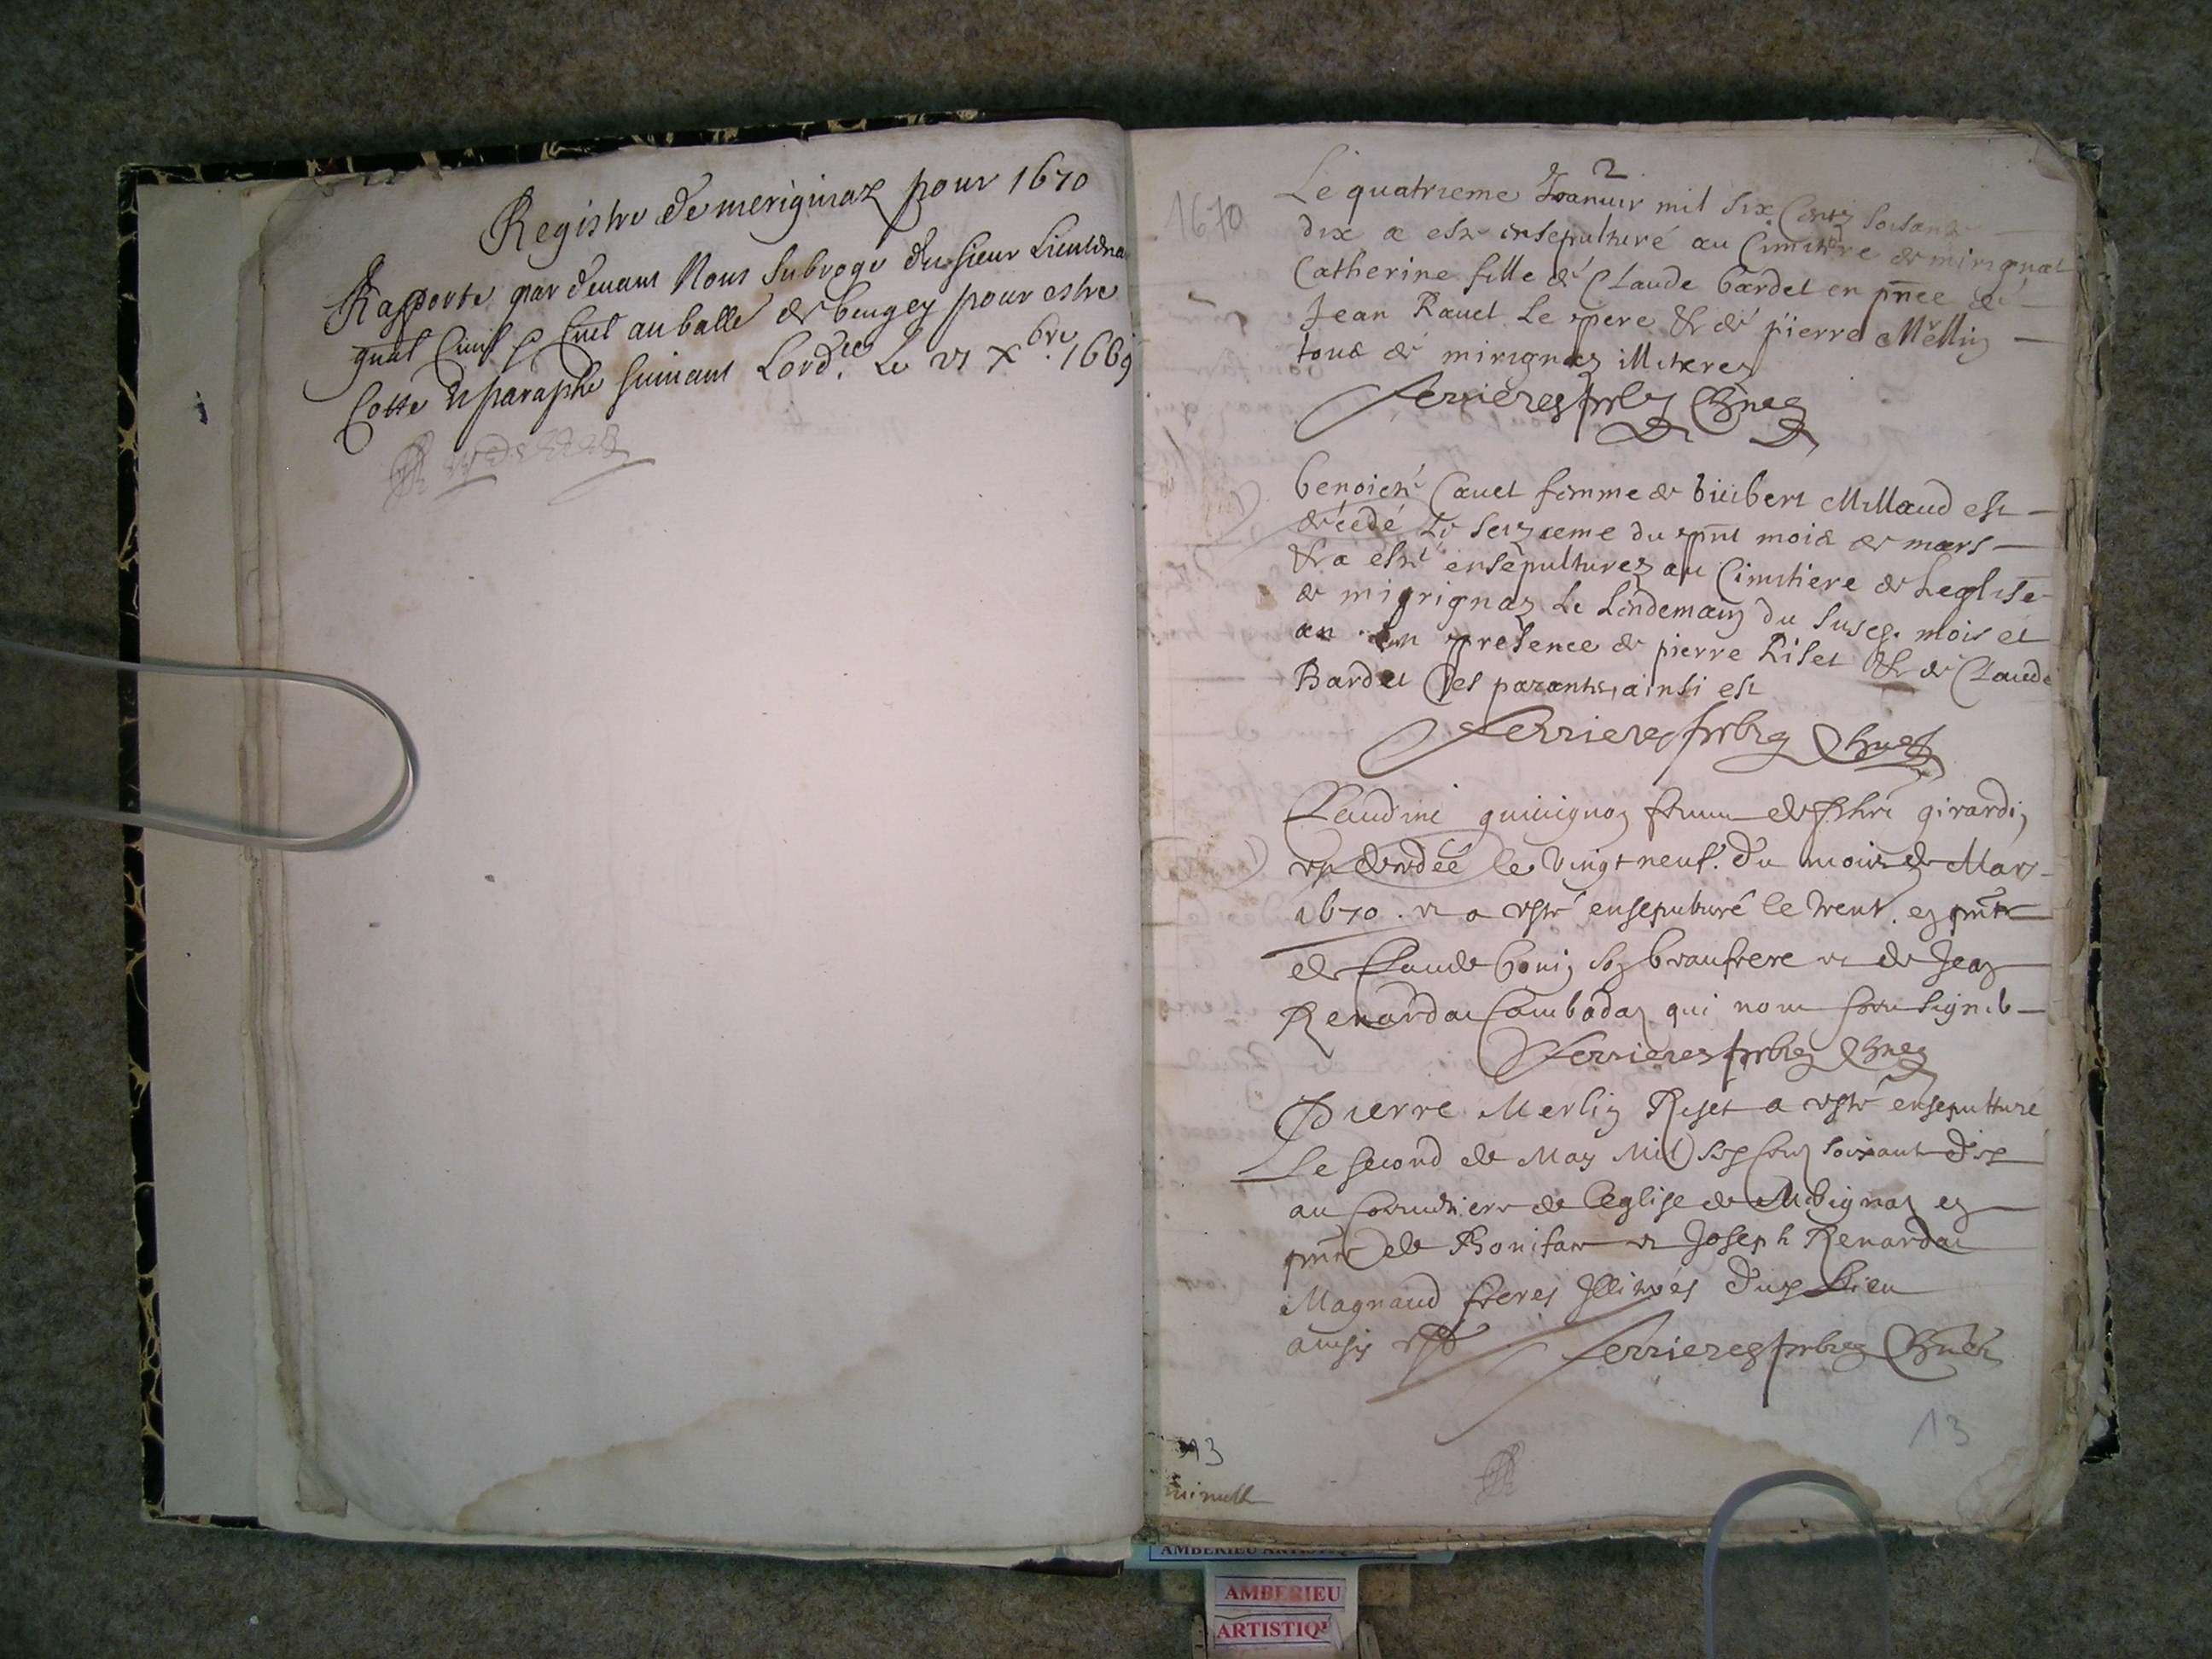 Registre de merignaz pour 1670
Rapporte par devant Nous Subrogé du sieur Lieutena
gnal Civil & Cruel au balle de beugey pour estre
Cotte & paraphe suivant Lord.ce Le 21 Xbre 1669
2
1670
Le quatrieme Joanvir mil six Centz soisante
dix a este ensepulturé au Cimitire de mirignat
Catherine fille de Claude bardet en pnce de
Jean Ravet Le pere & de pierre Merlin
tous de mirignaz illiteres
ferrieres prbr Cure
benoiste Cavet femme de bieibert Millaud est
décédé Le seizieme du pnt mois de mars
& a esté ensepulturez au Cimitiere de Leglise
de migrignaz Le Lendemain du susd. mois et
an en presence de pierre Riset & de Claude
Bardet Ses parants, ainsi est
ferrieres prbre Cure
Claudine guivignon femme de girardin
est décédéé le vingt neuf. du mois de Mars
1670. et a esté ensepulturé le trente. en pnce
de Claude bonin son beaufrere et de Jean
Renardat Cambadaz qui nont sceu signé
ferrieres prbre Cure
Pierre Merlin Riset a esté ensepulturé
Le second de May Mil six Centz soixante dix
au Coemitiere de Leglise de Merignaz en
pnce de Boniface et Joseph Renardat
Magnaud freres Illitrés dud Lieu
ainsy est
ferrieres prbre Cure
13
13
minutte
AMBERIEU ARTISTIQUE
AMBERIEU
ARTISTIQU